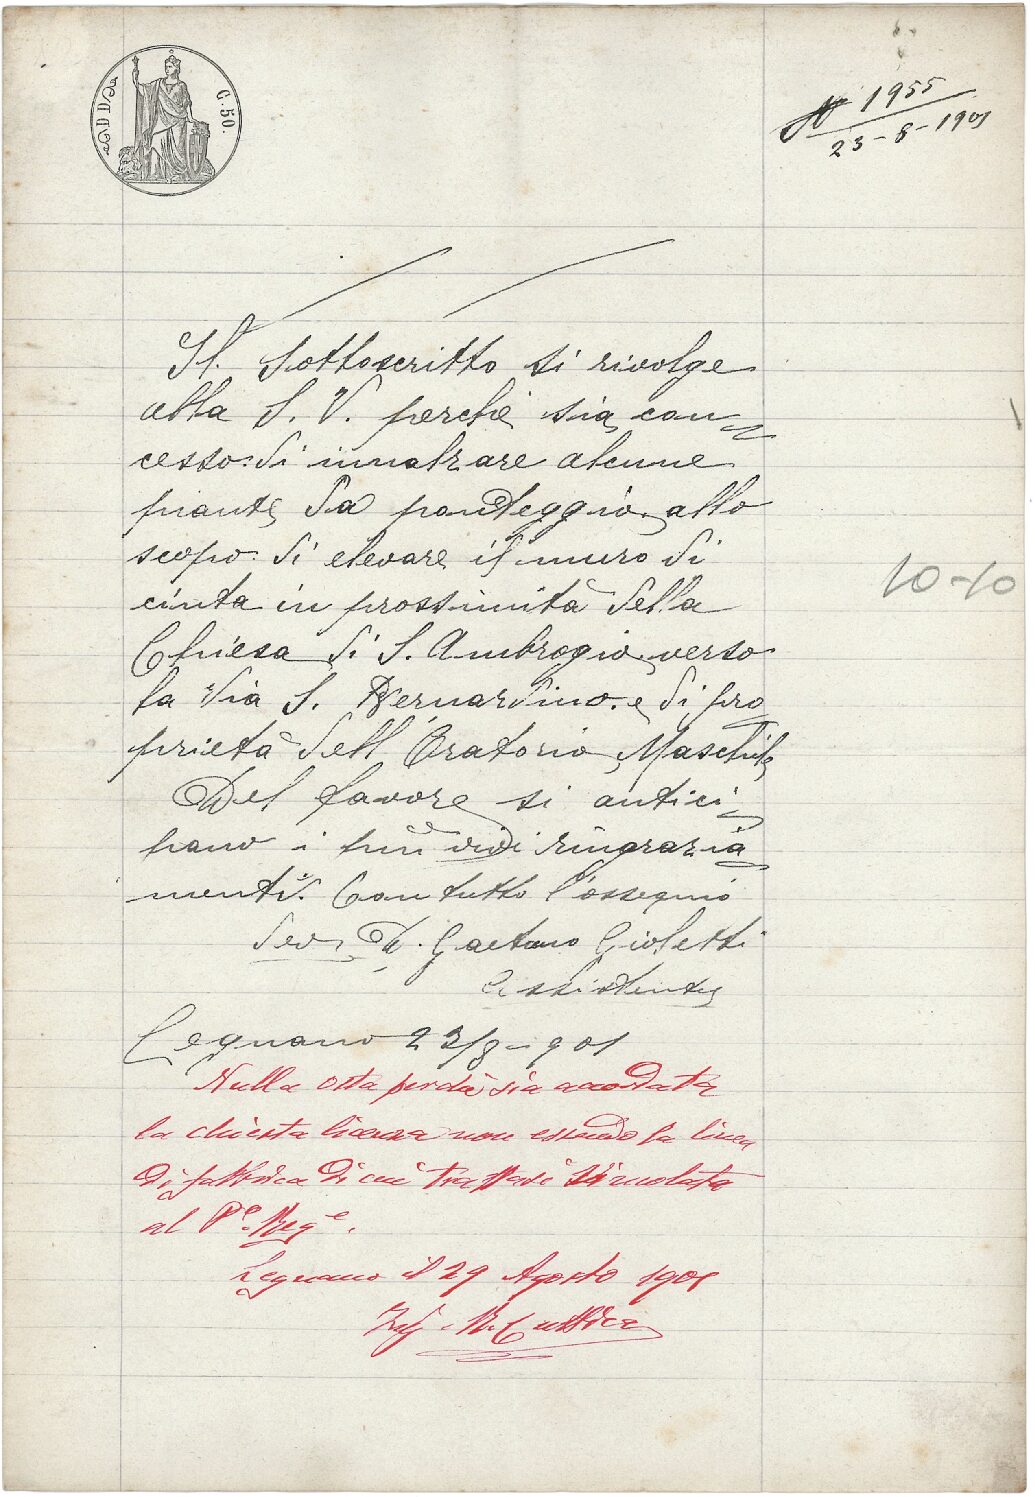 C. 50.
N° 1955
23-8-1901
Il sottoscritto si rivolge
alla S. V. perchè sia con=
cesso di innalzare alcune
piante da ponteggio allo
scopo di elevare il muro di
cinta in prossimità della
Chiesa di S. Ambrogio verso
la Via S. Bernardino e di pro
prietà dell'Oratorio Maschile
Del favore si antici=
pano i più vivi ringrazia=
menti. Con tutto l'ossequio
Dev. D. Gaetano Gioletti
Assistente
Legnano 23/8-901
10-10
Nulla osta perchè sia accordata
la chiesta licenza non essendo la linea
di fabbrica di cui trattasi vincolata
al P.º Reg.e.
Legnano il 29 Agosto 1901
Ing.